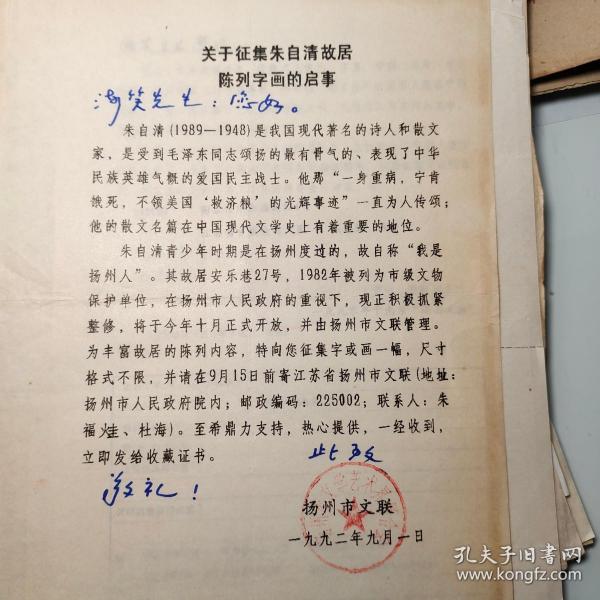 关于征集朱自清故居
陈列字画的启事
海笑先生：您好。
朱自清（1989—1948）是我国现代著名的诗人和散文
家，是受到毛泽东同志颂扬的最有骨气的、表现了中华
民族英雄气概的爱国民主战士。他那“一身重病，宁肯
饿死，不领美国‘救济粮’的光辉事迹”一直为人传颂；
他的散文名篇在中国现代文学史上有着重要的地位。
朱自清青少年时期是在扬州度过的，故自称“我是
扬州人”。其故居安乐巷27号，1982年被列为市级文物
保护单位，在扬州市人民政府的重视下，现正积极抓紧
整修，将于今年十月正式开放，并由扬州市文联管理。
为丰富故居的陈列内容，特向您征集字或画一幅，尺寸
格式不限，并请在9月15日前寄江苏省扬州市文联（地址：
扬州市人民政府院内；邮政编码：225002；联系人：朱
福烓、杜海）。至希鼎力支持，热心提供，一经收到，
立即发给收藏证书。
此致
敬礼！
扬州市文联
一九九二年九月一日
孔夫子旧书网
www.kongfz.com